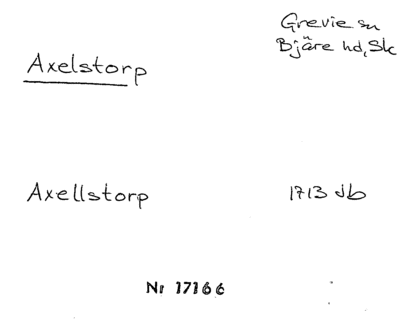 Grevie sn
Bjäre hd, Sk
Axelstorp
Axellstorp 1713 Jb
Nr 17166